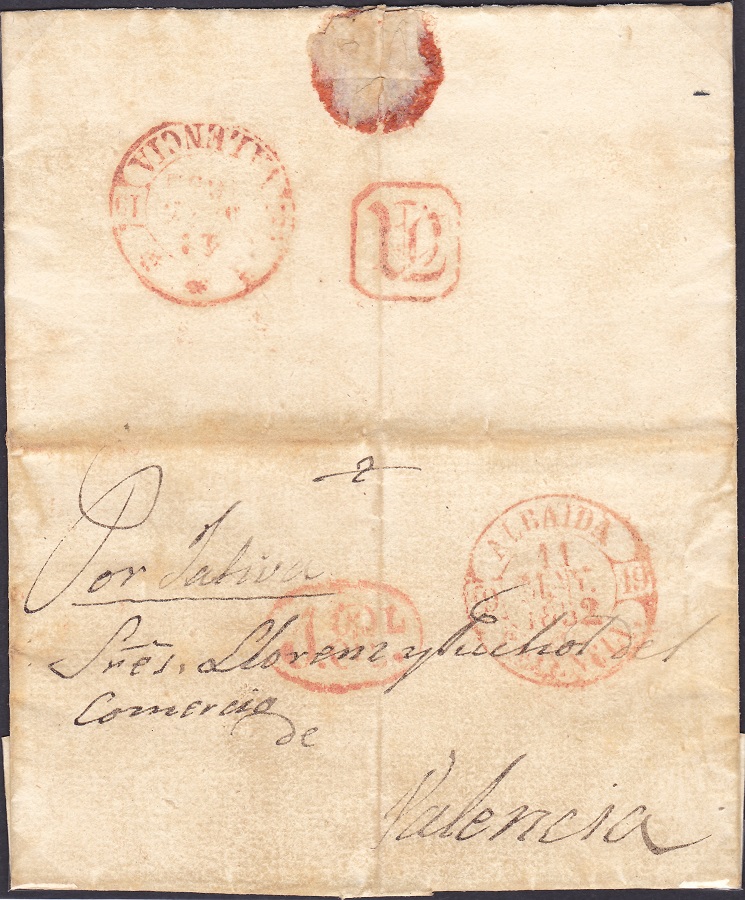 VALENCIA
2
Por Jativa
Sres. Llorens y Puchol del
Comercio
de
Valencia
ALBAIDA
11
1852
19
VALENCIA